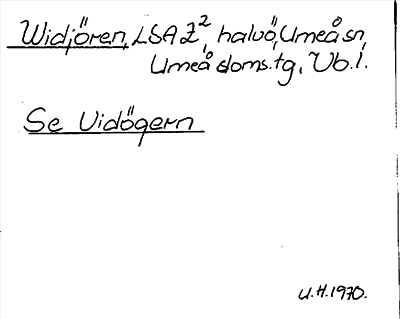 Widjören, LSA Z², halvö, Umeå sn,
Umeå doms.tg, Vb.l.
Se Vidögern
U.H.1970.